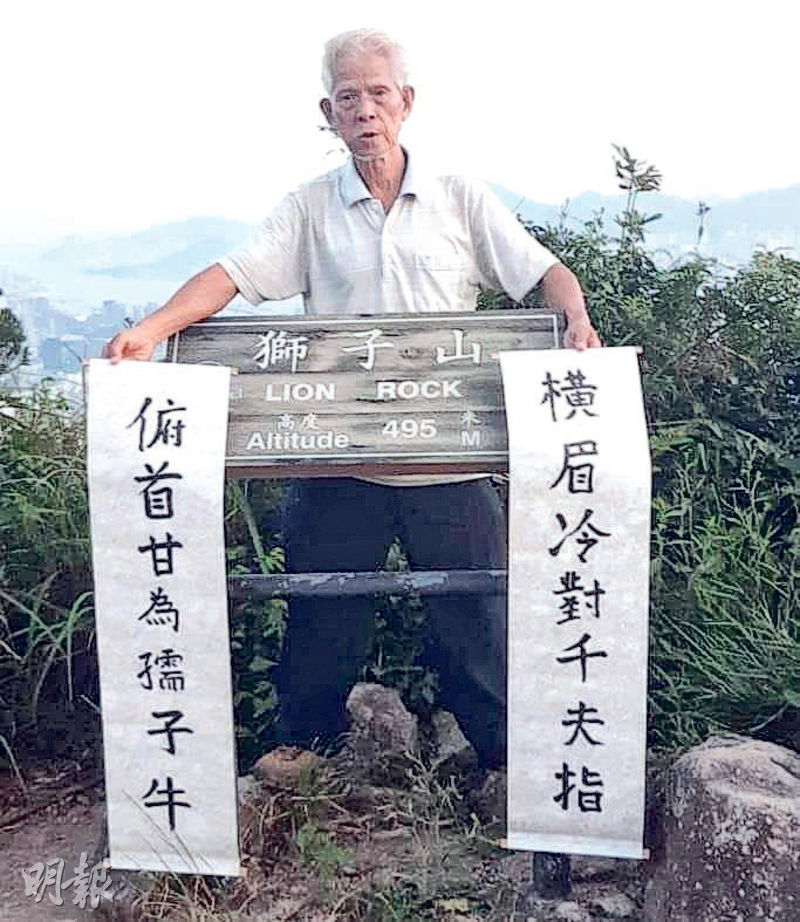 獅子山
LION ROCK
高度 495 米
Altitude M
橫眉冷對千夫指
俯首甘為孺子牛
明報